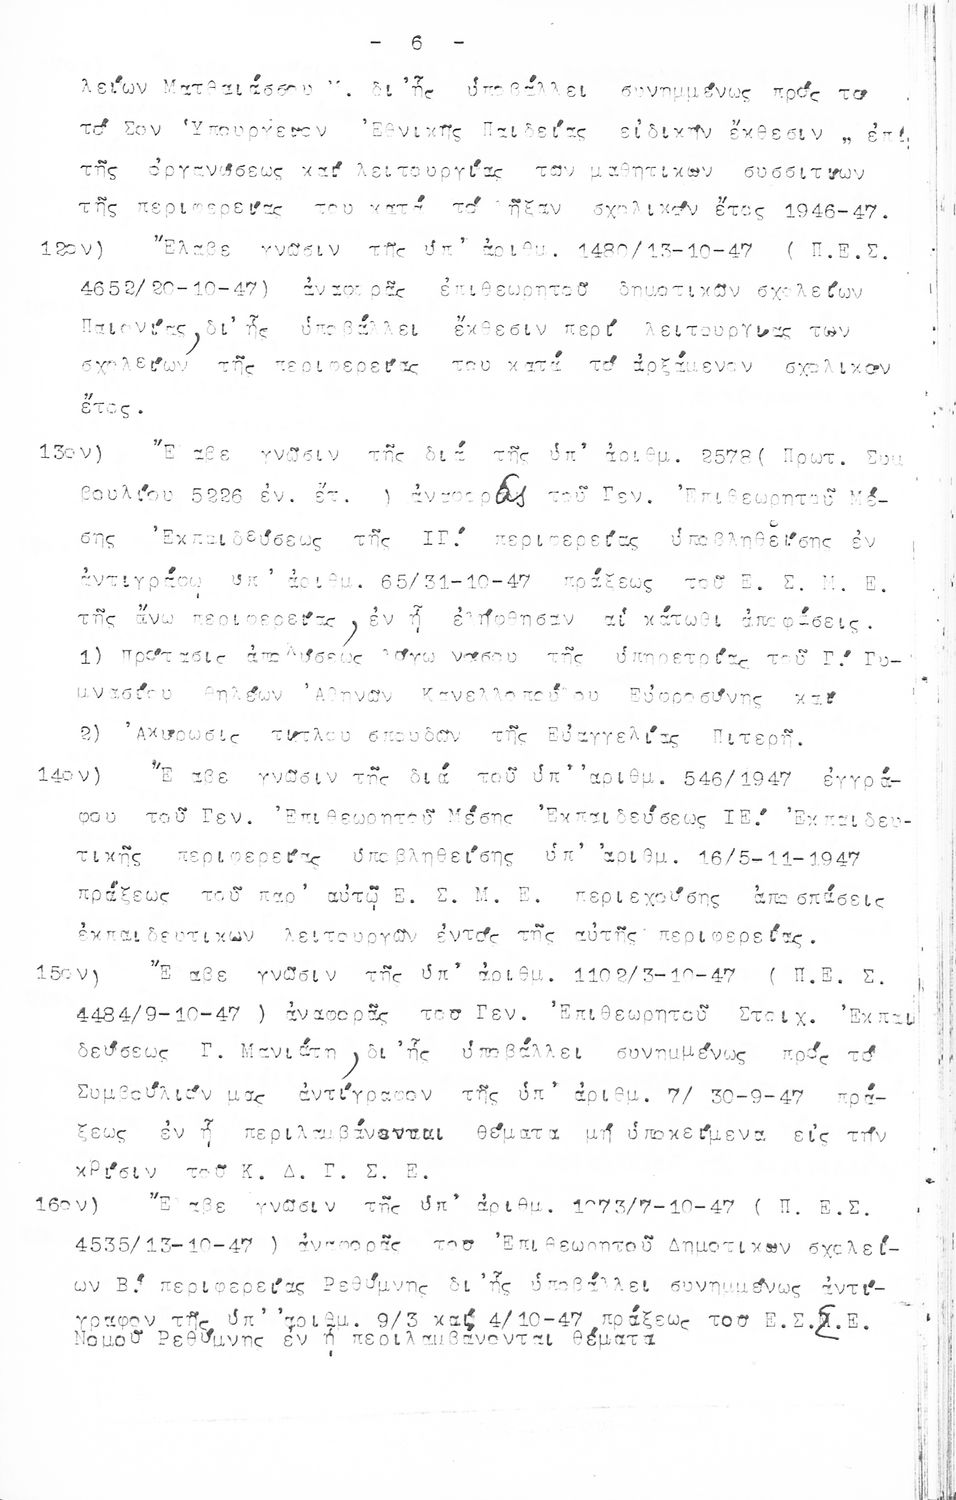 - 6 -
λείων Ματθαιάσσου Μ. δι'ἧς ὑποβάλλει συνημμένως πρός το
τό Σον Ὑπουργεῖον Ἐθνικῆς Παιδείας εἰδικήν ἔκθεσιν „ ἐπί
τῆς ὀργανώσεως καί λειτουργίας των μαθητικων συσσιτίων
τῆς περιφερείας του κατά τό λῆξαν σχολικόν ἔτος 1946-47.
12ον) Ἔλαβε γνῶσιν τῆς ὑπ' ἀριθμ. 1480/13-10-47 ( Π.Ε.Σ.
4652/20-10-47) ἀναφορᾶς ἐπιθεωρητοῦ δημοτικῶν σχολείων
Παιονίας, δι' ἧς ὑποβάλλει ἔκθεσιν περί λειτουργίας των
σχολείων τῆς περιφερείας του κατά τό ἀρξάμενον σχολικον
ἔτος.
13ον) Ἔ αβε γνῶσιν τῆς διά τῆς ὑπ' ἀριθμ. 2578( Πρωτ. Συμ
βουλίου 5226 ἐν. ἔτ. ) ἀναφορᾶς τοῦ Γεν. Ἐπιθεωρητοῦ Μέ-
σης Ἐκπαιδεύσεως τῆς ΙΓ! περιφερείας ὑποβληθείσης ἐν
ἀντιγράφῳ ὑπ' ἀριθμ. 65/31-10-47 πράξεως τοῦ Ε. Σ. Μ. Ε.
τῆς ἄνω περιφερείας, ἐν ᾗ ἐλήφθησαν αἱ κάτωθι ἀποφάσεις.
1) Πρότασις ἀπολύσεως λόγω νόσου τῆς ὑπηρετρίας τοῦ Γ! Γυ-
μνασίου θηλέων Ἀθηνῶν Κανελλοπούλου Εὐφροσύνης καί
2) Ἀκύρωσις τίτλου σπουδῶν τῆς Εὐαγγελίας Πιτερῆ.
14ον) Ἔ αβε γνῶσιν τῆς διά τοῦ ὑπ''αριθμ. 546/1947 ἐγγρά-
φου τοῦ Γεν. Ἐπιθεωρητοῦ Μέσης Ἐκπαιδεύσεως ΙΕ! Ἐκπαιδευ-
τικῆς περιφερείας ὑποβληθείσης ὑπ' ἀριθμ. 16/5-11-1947
πράξεως τοῦ παρ' αὐτῷ Ε. Σ. Μ. Ε. περιεχούσης ἀποσπάσεις
ἐκπαιδευτικων λειτουργῶν ἐντός τῆς αὐτῆς περιφερείας.
15ον) Ἔ αβε γνῶσιν τῆς ὑπ' ἀριθμ. 1102/3-10-47 ( Π.Ε. Σ.
4484/9-10-47 ) ἀναφορᾶς του Γεν. Ἐπιθεωρητοῦ Στοιχ. Ἐκπαι
δεύσεως Γ. Μανιάτη, δι'ἧς ὑποβάλλει συνημμένως πρός τό
Συμβούλιόν μας ἀντίγραφον τῆς ὑπ' ἀριθμ. 7/ 30-9-47 πρά-
ξεως ἐν ᾗ περιλαμβάνονται θέματα μή ὑποκείμενα εἰς τήν
κρίσιν τοῦ Κ. Δ. Γ. Σ. Ε.
16ον) Ἔ αβε γνῶσιν τῆς ὑπ' ἀριθμ. 1073/7-10-47 ( Π. Ε.Σ.
4535/13-10-47 ) ἀναφορᾶς του Ἐπιθεωρητοῦ Δημοτικων σχολεί-
ων Β! περιφερείας Ρεθύμνης δι'ἧς ὑποβάλλει συνημμένως ἀντί-
γραφον τῆς ὑπ' ἀριθμ. 9/3 καί 4/10-47 πράξεως του Ε.Σ.Σ.Ε.
Νομοῦ Ρεθύμνης ἐν ᾗ περιλαμβάνονται θέματα